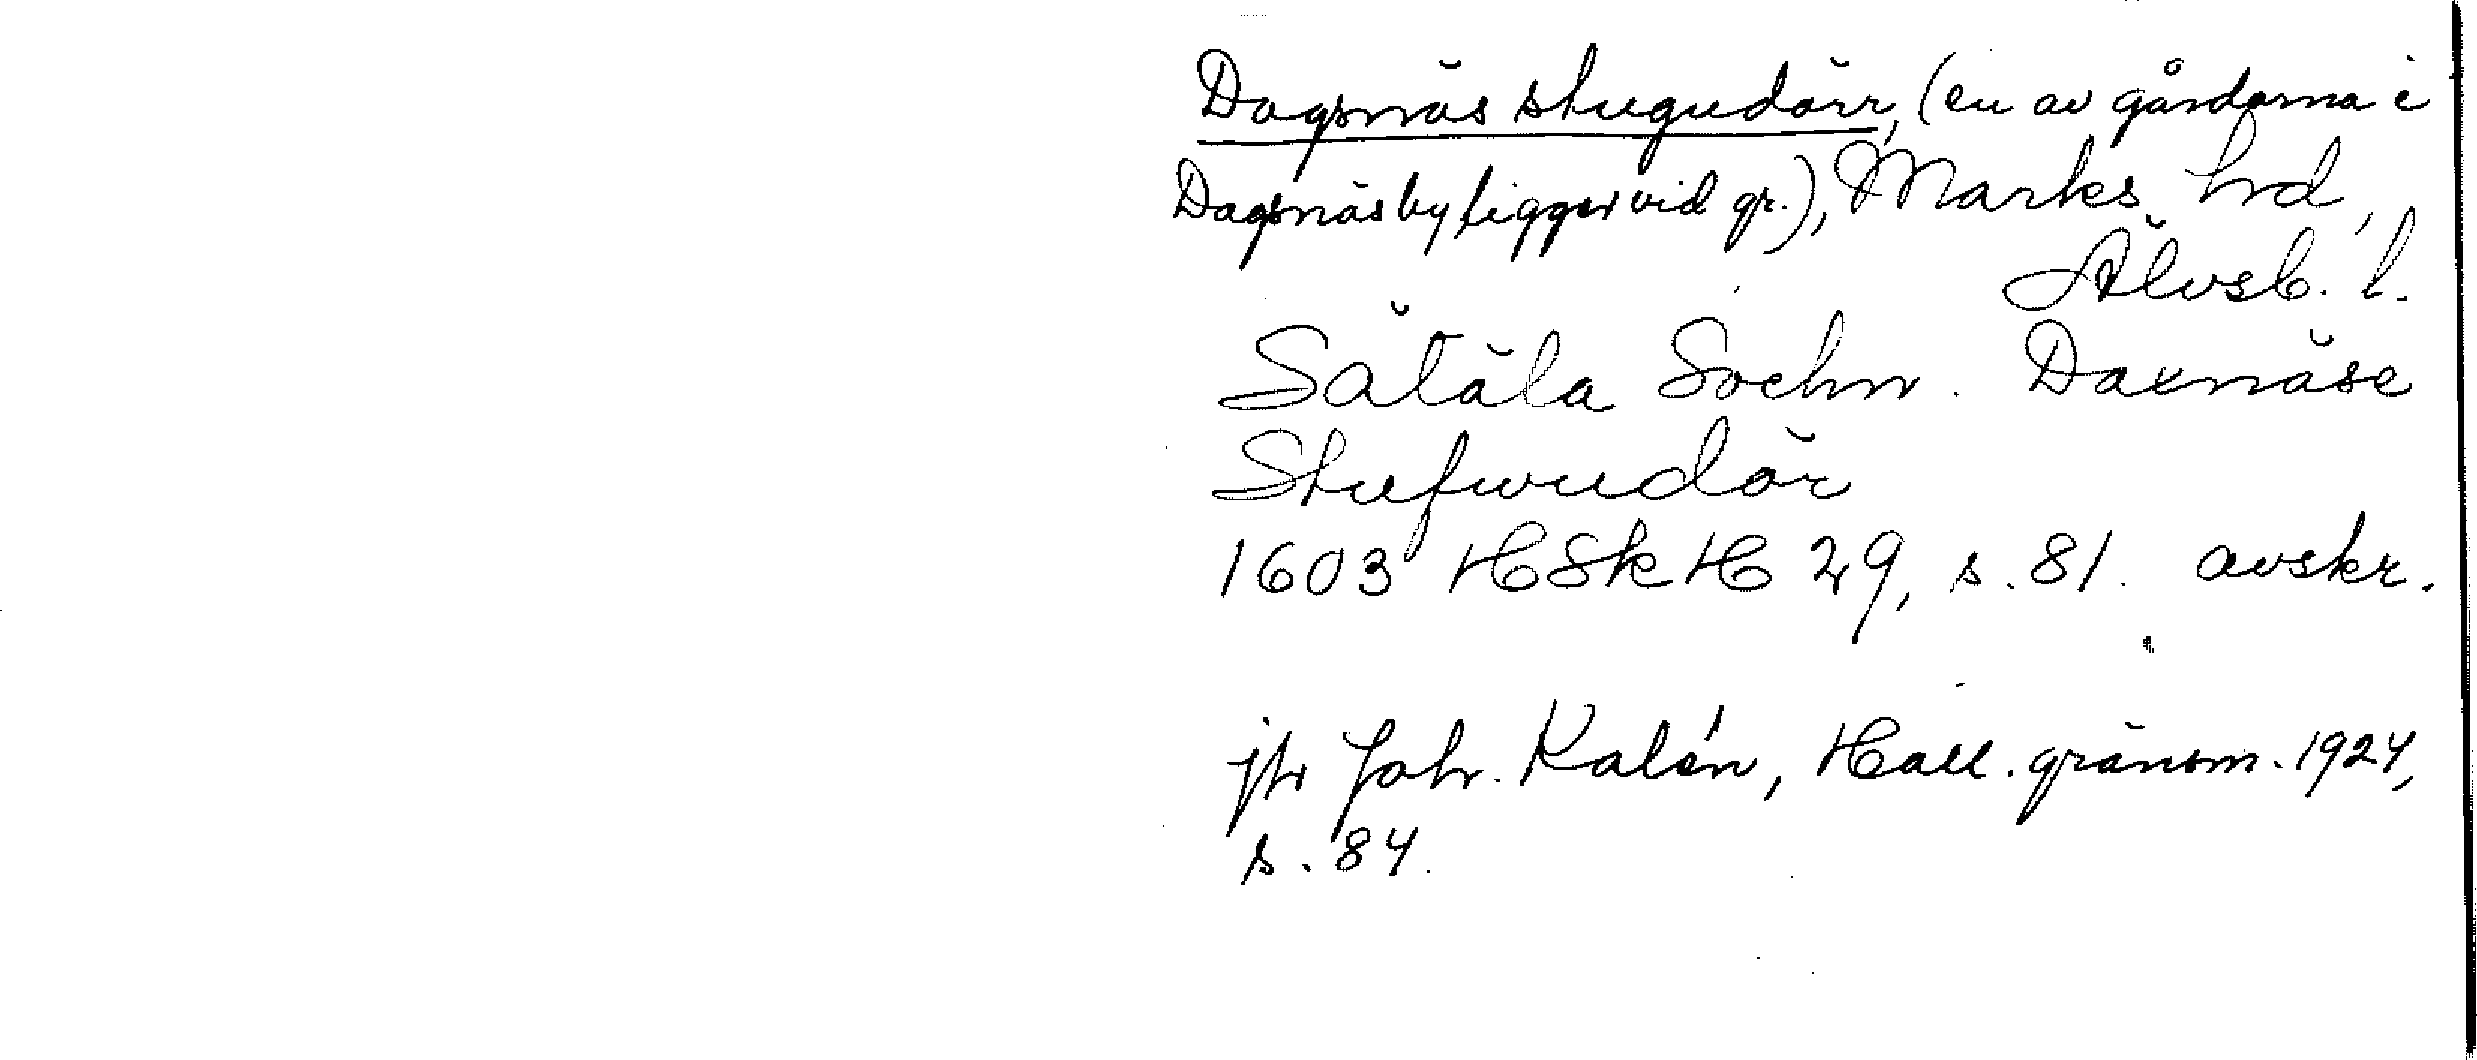 Dagsnäs stugudörr, (en av gårdarna i
Dagsnäs by ligger vid gr.), Marks hrd,
Älvsb. l.
Sätäla Sochn. Daxnäse
Stufwudör
1603 HSkH 29, s. 81. avskr.
jfr Joh. Kalén, Hall. gränsm. 1924,
s. 84.